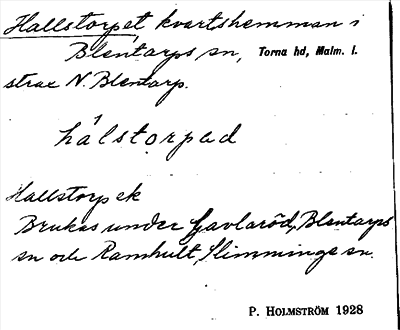 Hallstorpet kvartshemman i
Blentarps sn, Torna hd, Malm. l.
strax N. Blentarp.
hálstorpəd
Hallstorp ek
Brukas under Gavlaröd, Blentarps
sn och Ramhult, Slimminge sn.
P. HOLMSTRÖM 1928